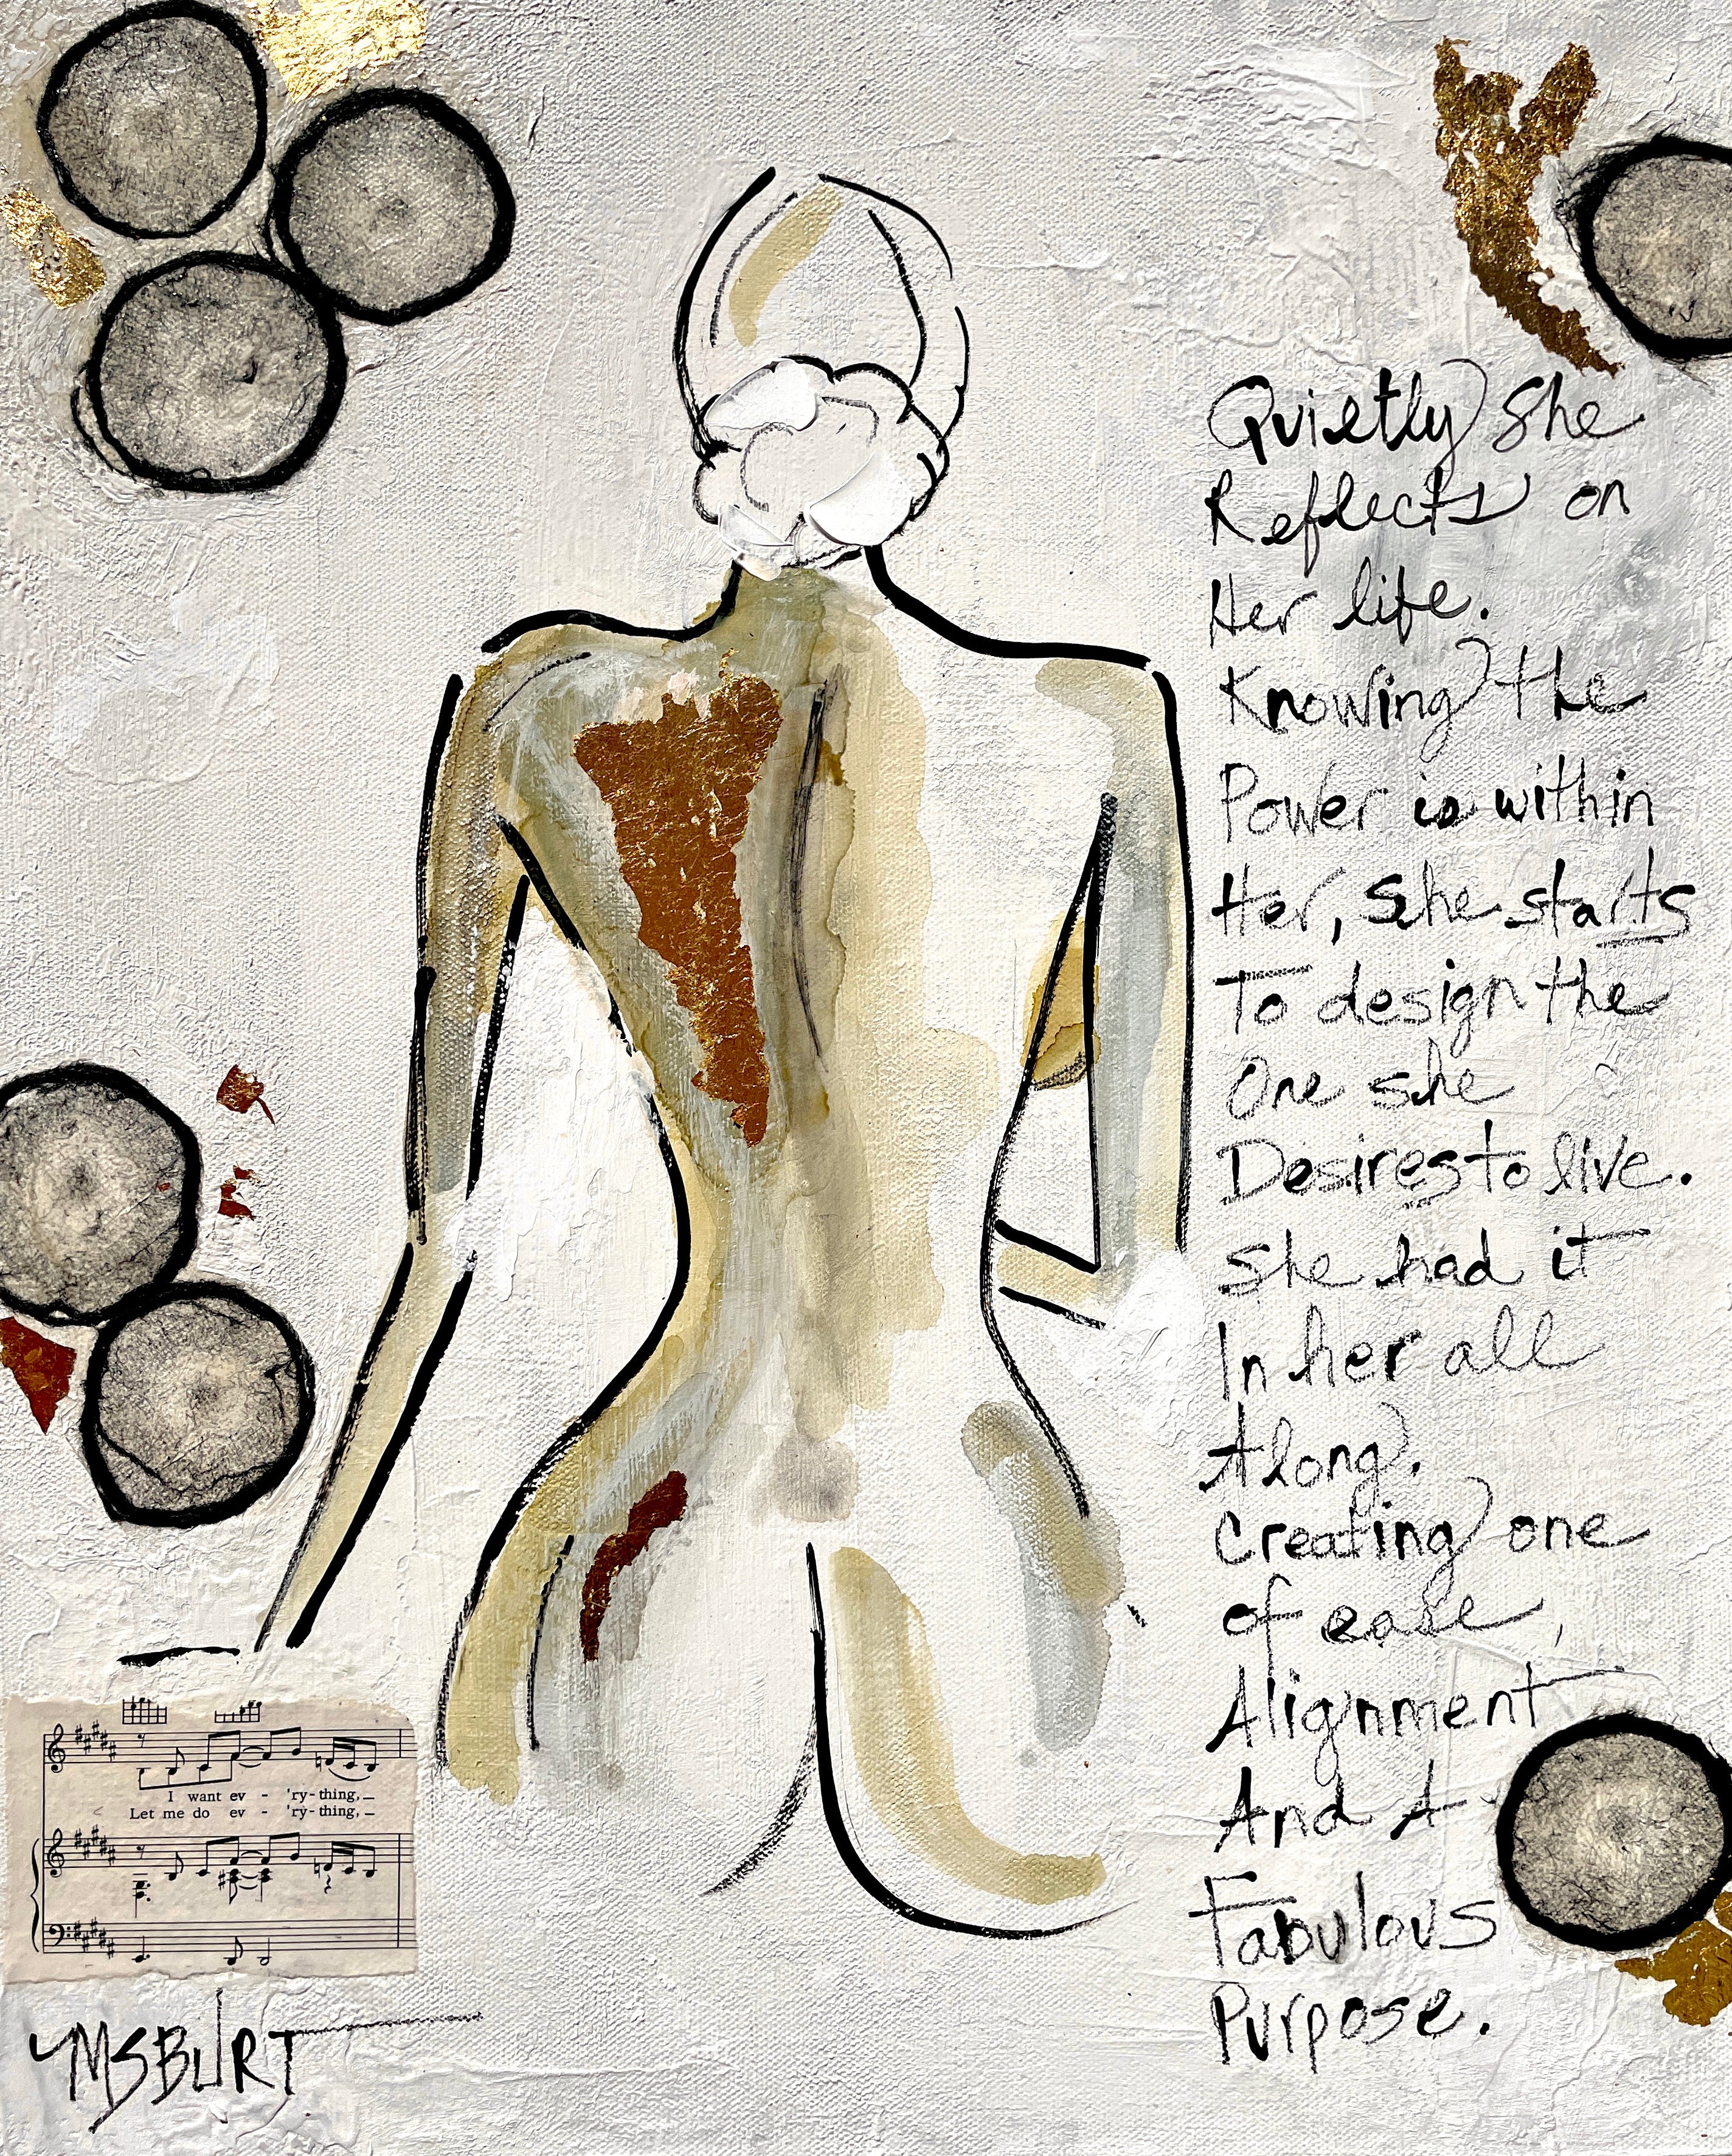 Quietly She
Reflects on
Her life.
Knowing the
Power is within
Her, She starts
To design the
One she
Desires to live.
She had it
In her all
Along.
Creating one
of ease,
Alignment
And A
Fabulous
Purpose.
I want ev - 'ry - thing,
Let me do ev - 'ry - thing,
YMSBURT